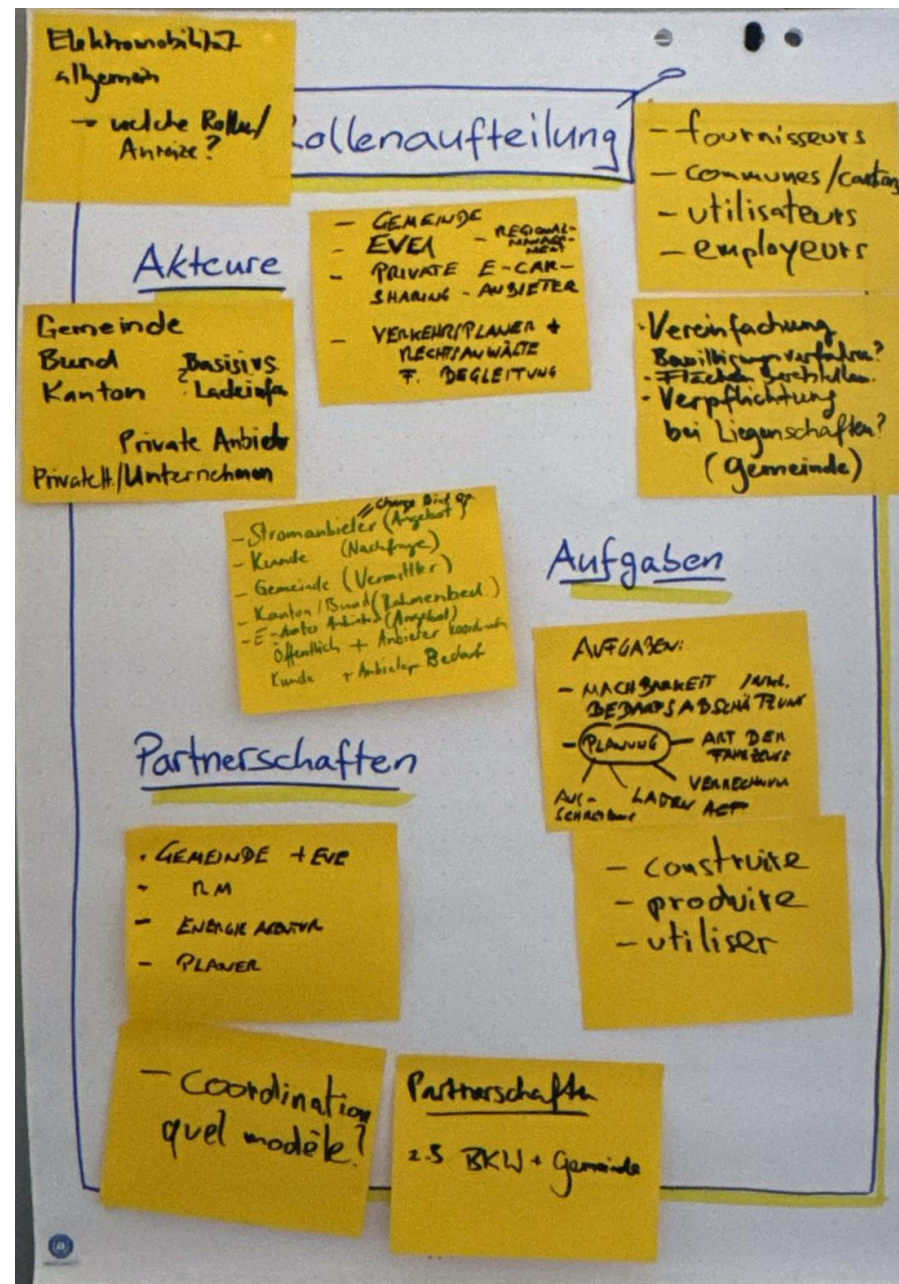 Elektromobilität
allgemein
→ welche Rollen/
Anreize?
Rollenaufteilung
- fournisseurs
- communes/cantons
- utilisateurs
- employeurs
Akteure
- GEMEINDE
- EVEA - REGIONAL-
MANAGE-
MENT
- PRIVATE E-CAR-
SHARING-ANBIETER
- VERKEHRSPLANER +
RECHTSANWÄLTE
F. BEGLEITUNG
Gemeinde
Bund
Kanton Ladeinfa
Private Anbieter
Private H./Unternehmen
· Vereinfachung
Bewilligungsverfahren?
- Flächen bereitstellen.
- Verpflichtung
bei Liegenschaften?
(Gemeinde)
- Stromanbieter (Angebot)
- Kunde (Nachfrage)
- Gemeinde (Vermittler)
- Kanton/Bund (Rahmenbed.)
- E-Auto Anbieter (Angebot)
Öffentlich + Anbieter
Kunde + Anbieter Bedarf
Aufgaben
AUFGABEN:
- MACHBARKEIT INKL.
BEDARFSABSCHÄTZUNG
- PLANUNG - ART DER
FAHRZEUGE
VERRECHNUNG
LADEN
AUS-
SCHREIBUNG
- construire
- produire
- utiliser
Partnerschaften
· GEMEINDE + EVE
- RM
- ENERGIE AGENTUR
- PLANER
- Coordination
quel modèle?
Partnerschaften
z.B BKW + Gemeinde